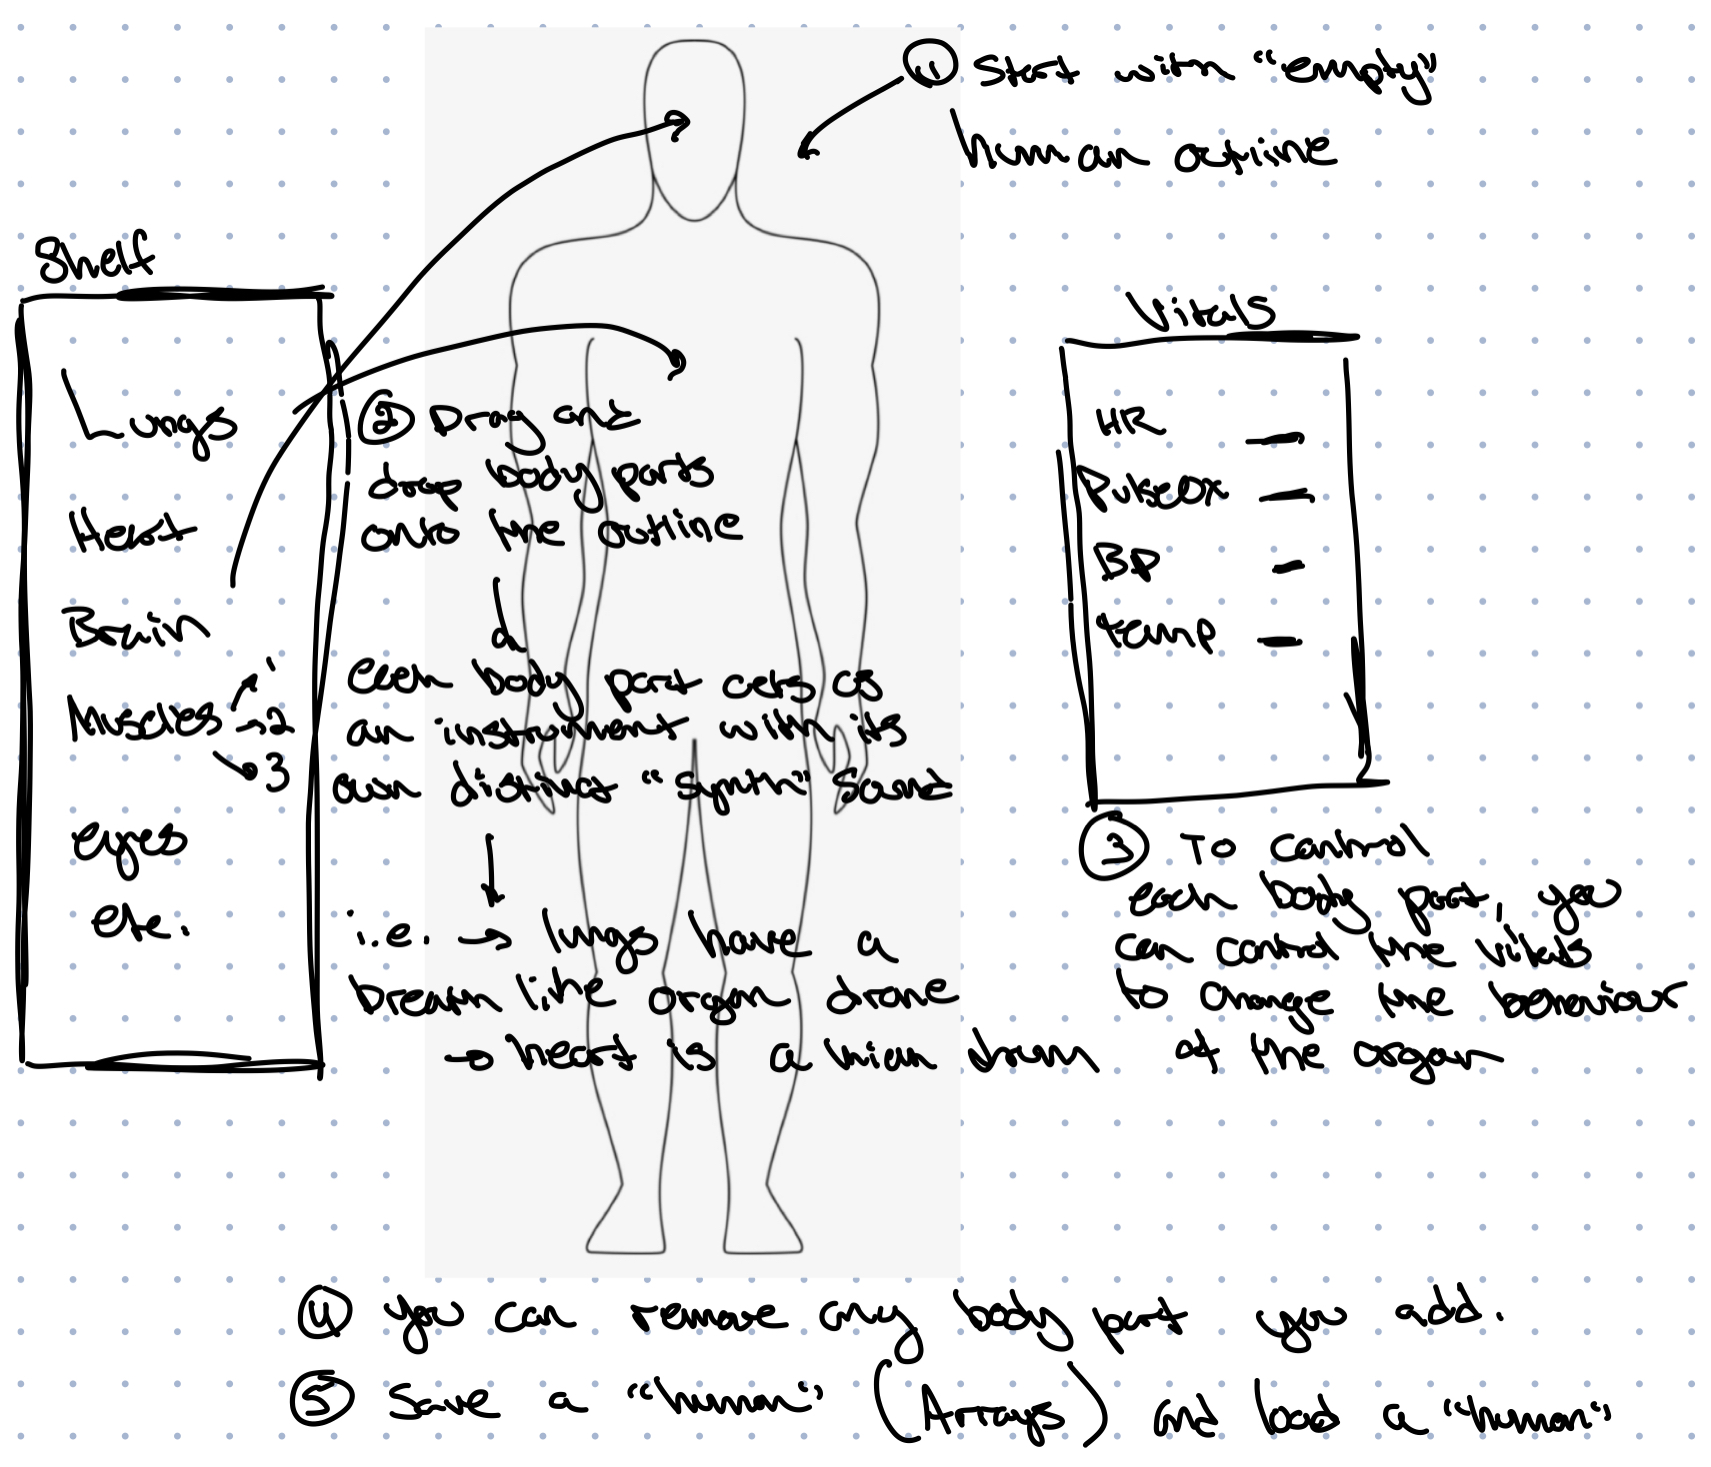 ① Start with "empty"
human outline
Shelf
Lungs
Heart
Brain
Muscles → 1
→ 2
→ 3
eyes
etc.
② Drag and
drop body parts
onto the outline
each body part acts as
an instrument with its
own distinct "synth" sound
i.e. → lungs have a
breath like organ drone
→ heart is a drum
Vitals
HR —
PulseOx —
BP —
temp —
③ To control
each body part, you
can control the vitals
to change the behaviour
of the organ
④ you can remove any body part you add.
⑤ Save a "human" (Arrays) and load a "human"